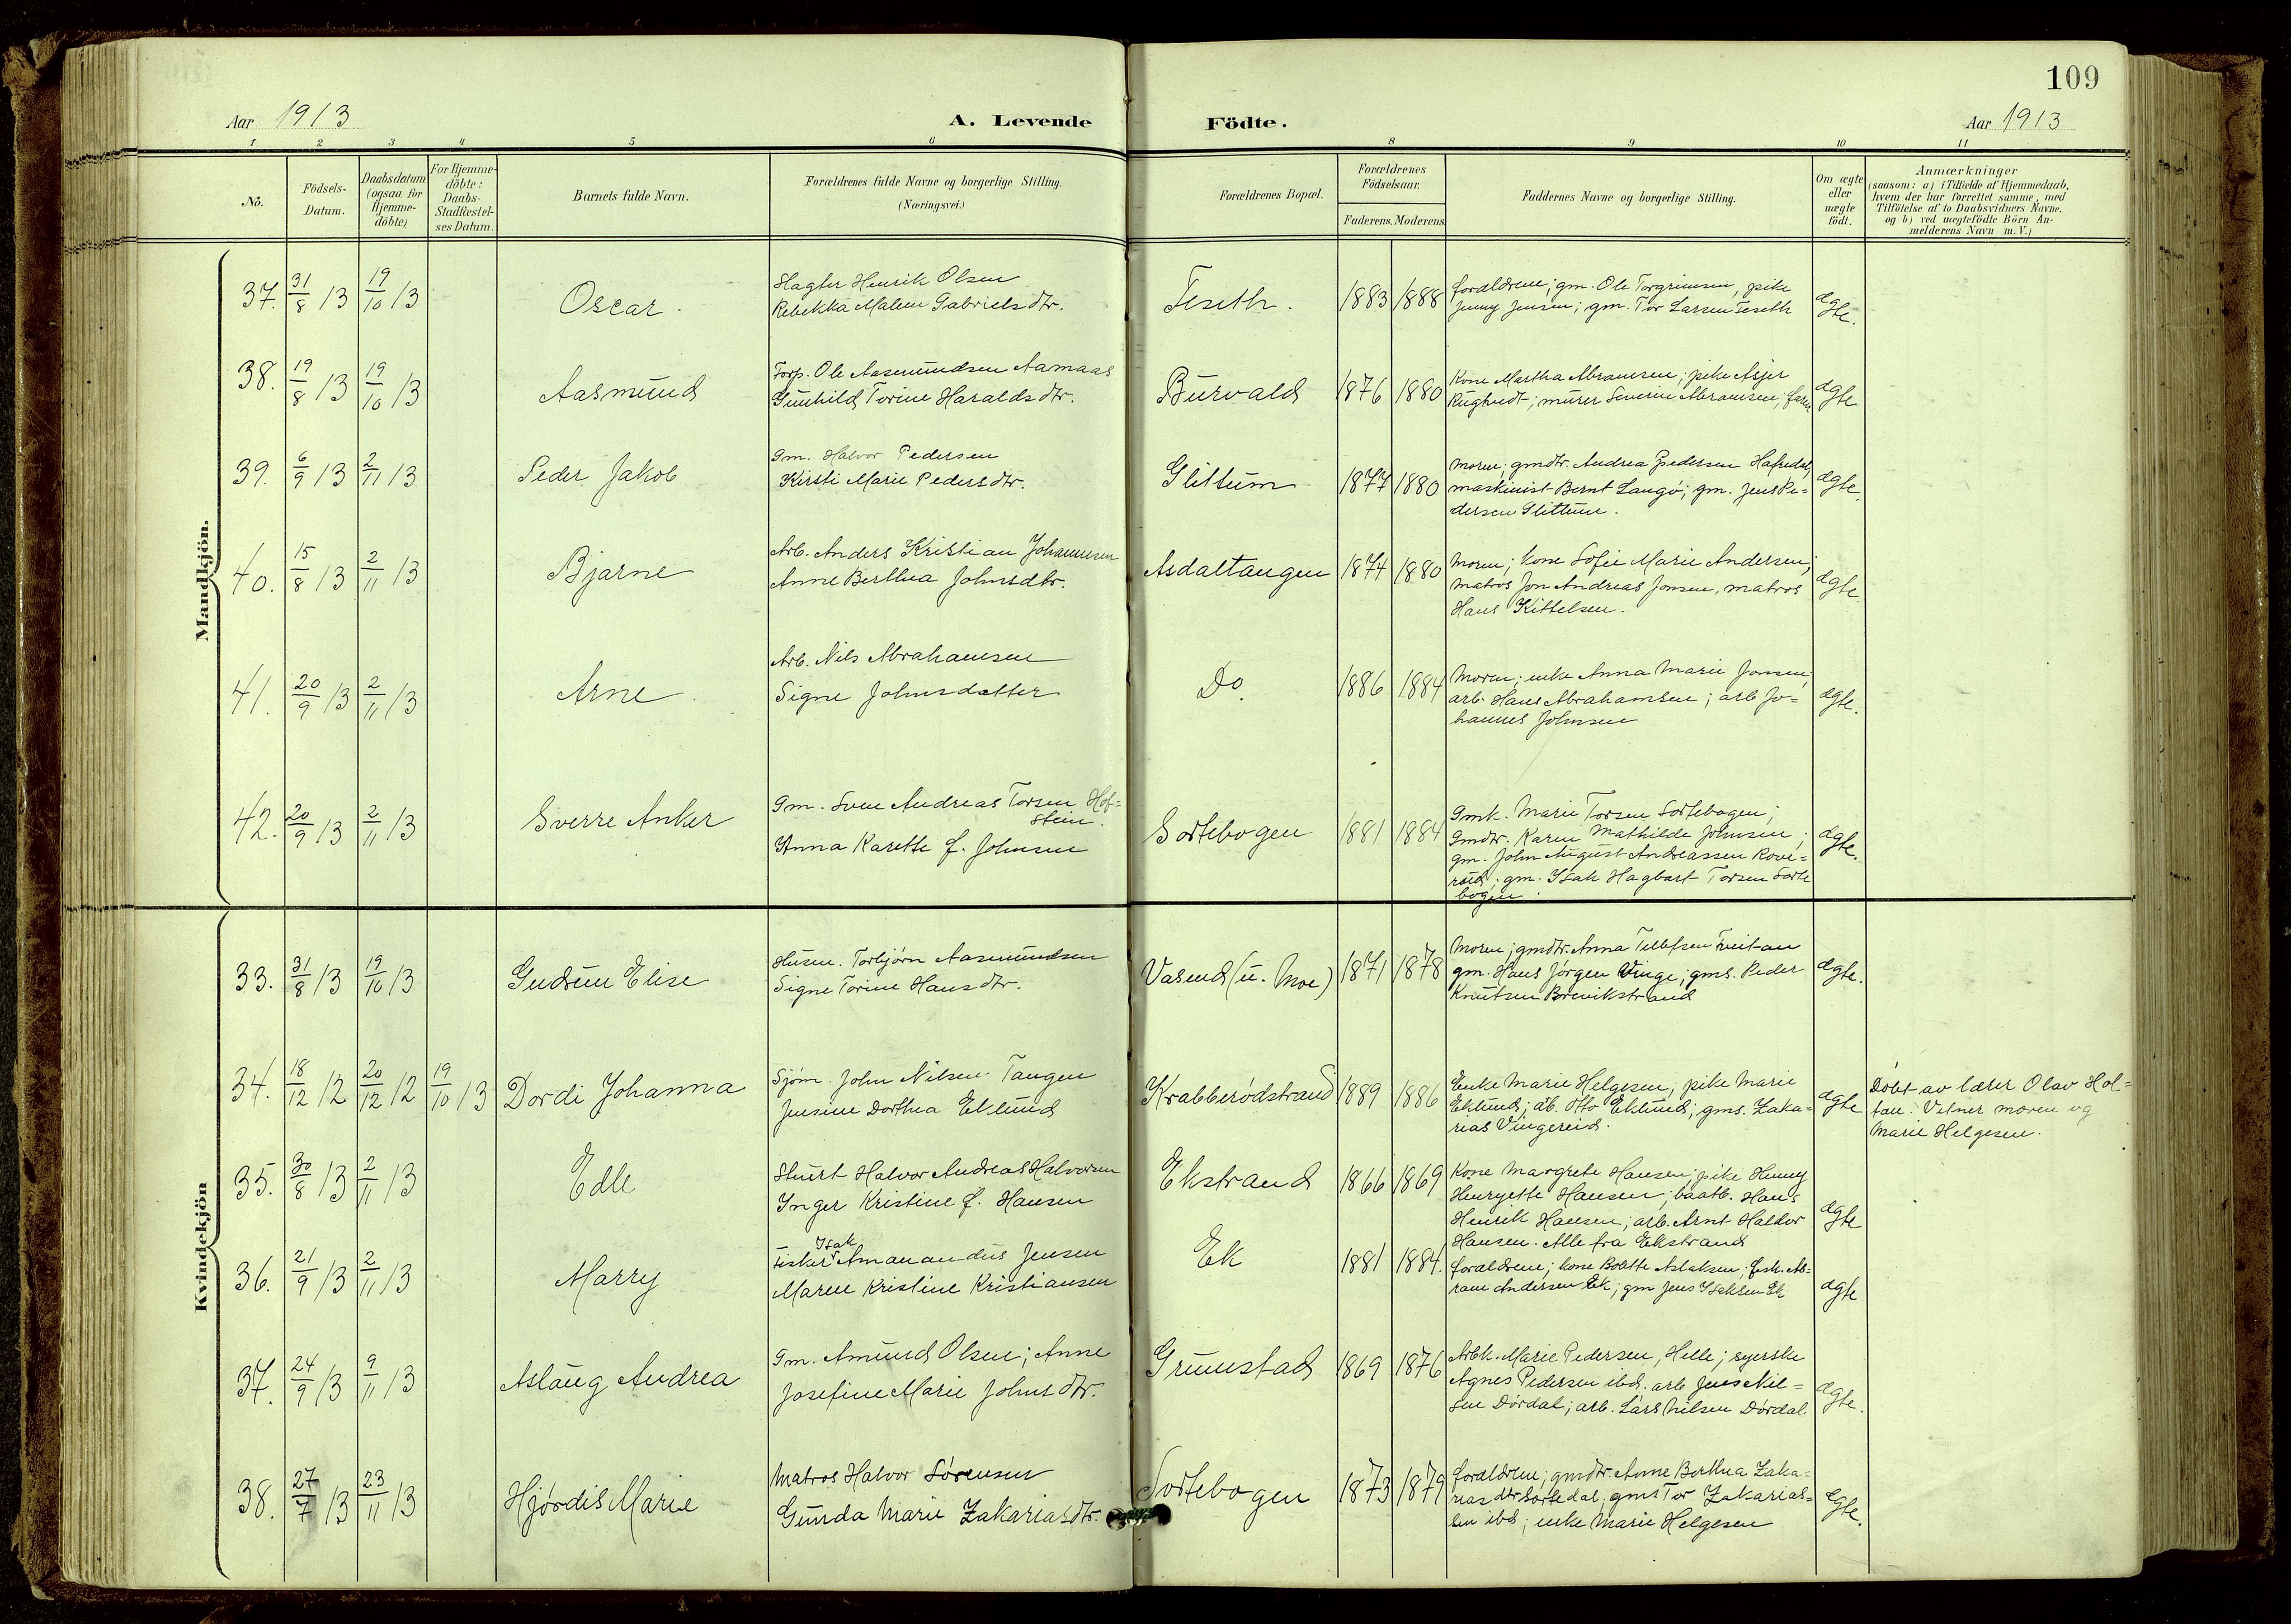 109
Aar 1913
A. Levende Födte.
Aar 1913
1 2 3 4 5 6 8 9 10 11
No.
Födsels-
Datum.
Daabsdatum
(ogsaa for
Hjemme-
döbte)
For Hjemme-
döbte:
Daabs-
Stadfæstel-
ses Datum.
Barnets fulde Navn.
Forældrenes fulde Navne og borgerlige Stilling.
(Næringsvei.)
Forældrenes Bopæl.
Forældrenes
Födselsaar.
Faderens. Moderens
Faddernes Navne og borgerlige Stilling.
Om ægte
eller
uægte
födt.
Anmærkninger
(saasom: a) i Tilfælde af Hjemmedaab,
hvem der har forrettet samme, med
Tilföielse af to Daabsvidners Navne.
og b) ved uægtefödte Börn An-
melderens Navn m. V.)
Mandkjön.
37. 31/8 13 19/10 13 Oscar.
Slagter Henrik Olsen
Rebekka Malene Gabrielsdtr.
Teseth. 1883 1888
forældrene; gm. Ole Torgrimsen, pike
Jenny Jensen; gm. Tor Larsen Teseth
ægte.
38. 19/8 13 19/10 13 Aasmund
Torp. Ole Aasmundsen Aamaas
Gunhild Torine Haraldsdtr.
Burvald 1876 1880
Kone Martha Abramsen; pike Asjer
Rugtvedt; murer Severin Abramsen, faren
ægte
39. 6/9 13 2/11 13 Peder Jakob
Gm. Halvor Pedersen
Kirsti Marie Pedersdtr.
Glittum 1877 1880
moren; gmdtr. Andrea Pedersen Hafredal,
maskinist Bernt Langö; gm. Jens Pe=
dersen Glittum.
ægte.
40. 15/8 13 2/11 13 Bjarne
Arb. Anders Kristian Johannesen
Anne Berthea Johnsdtr.
Asdaltangen 1874 1880
Moren; kone Sofie Marie Andersen;
matros Jon Andreas Jonsen, matros
Hans Kittelsen.
ægte.
41. 20/9 13 2/11 13 Arne.
Arb. Nils Abrahamsen
Signe Johnsdatter
Do. 1886 1884
Moren; enke Anna Marie Jonsen;
arb. Hans Abrahamsen; arb Jo=
hannes Johnsen
ægte.
42. 20/9 13 2/11 13 Sverre Anker
Gm. Sven Andreas Torsen Hof=
stein.
Anna Karette f. Johnsen
Sortebogen 1881 1884
Gmk. Marie Torsen Sortebogen;
Gmdtr. Karen Mathilde Johnsen;
gm. John August Andreassen Rove=
rud; gm. Isak Hagbart Torsen Sorte
bogen.
ægte.
Kvindekjön
33. 31/8 13 19/10 13 Gudrun Elise
Husm. Torbjørn Aasmundsen
Signe Torine Hansdtr.
Vasend (u. Moe) 1871 1878
Moren; gmdtr. Anna Tellefsen
gm. Hans Jørgen Vinge; gms. Peder
Knutsen Brevikstrand
ægte.
34. 18/12 12 20/12 12 19/10 13 Dordi Johanna
Sjøm. John Nilsen Tangen
Jensine Dorthea Eklund
Krabberødstrand 1889 1886
Enke Marie Helgesen; pike Marie
Eklund; arb. Otto Eklund; gms. Zaka=
rias Vingereid.
ægte
Døbt av lærer Olav Hol=
tan. Vitner moren og
Marie Helgesen.
35. 30/8 13 2/11 13 Edle
Stuert Halvor Andreas Halvorsen
Inger Kristine f. Hansen
Ekstrand 1866 1869
Kone Margrete Hansen; pike Henny
Henryette Hansen; baatb. Hans
Henrik Hansen; arb. Arnt Haldor
Hansen. Alle fra Ekstrand
ægte
36. 21/9 13 2/11 13 Marry
Isak
Fisker Amanandus Jensen
Maren Kristine Kristiansen
Ek 1881 1884.
forældrene; kone Bolette Aslaksen; fisk. Ab=
ram Andersen Ek; gm Jens Isaksen Ek
ægte
37. 24/9 13 9/11 13 Aslaug Andrea
Gm. Amund Olsen; Anne
Josefine Marie Johnsdtr.
Grumstad 1869 1876
Arbk. Marie Pedersen, Helle; syerske
Agnes Pedersen ibd. arb Jens Nil=
sen Dördal; arb. Lars Nilsen Dördal.
ægte.
38. 27/7 13 23/11 13 Hjørdis Marie
Matros Halvor Sørensen
Gunda Marie Zakariasdtr.
Sortebogen 1873 1879
forældrene; gmdtr. Anne Berthea Zaka=
riasdtr Sortedal; gms Tor Zakarias=
sen ibd; enke Marie Helgesen
Egte.